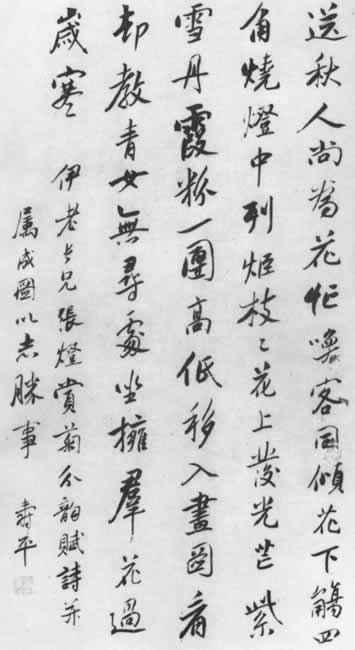 送秋人尚為花忙喚客同傾花下觴四
角燒燈中列炬枝〻花上發光芒紫
雪丹霞粉一團高低移入畫圖看
却教青女無尋處坐擁羣花過
歲寒 伊老長兄張燈賞菊分韻賦詩并
属成圖以志勝事 壽平